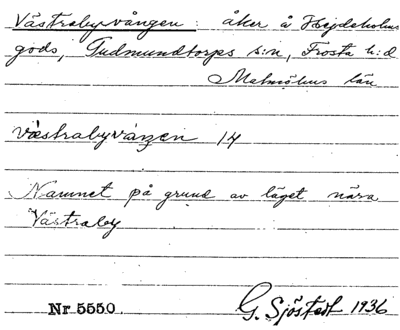 Västrabyvången: åker å Hejdeholms
gods, Gudmundtorps s:n, Frosta h:d
Malmöhus län
Västrabyvången 14
Namnet på grund av läget nära
Västraby
Nr 5550. G. Sjöstedt 1936